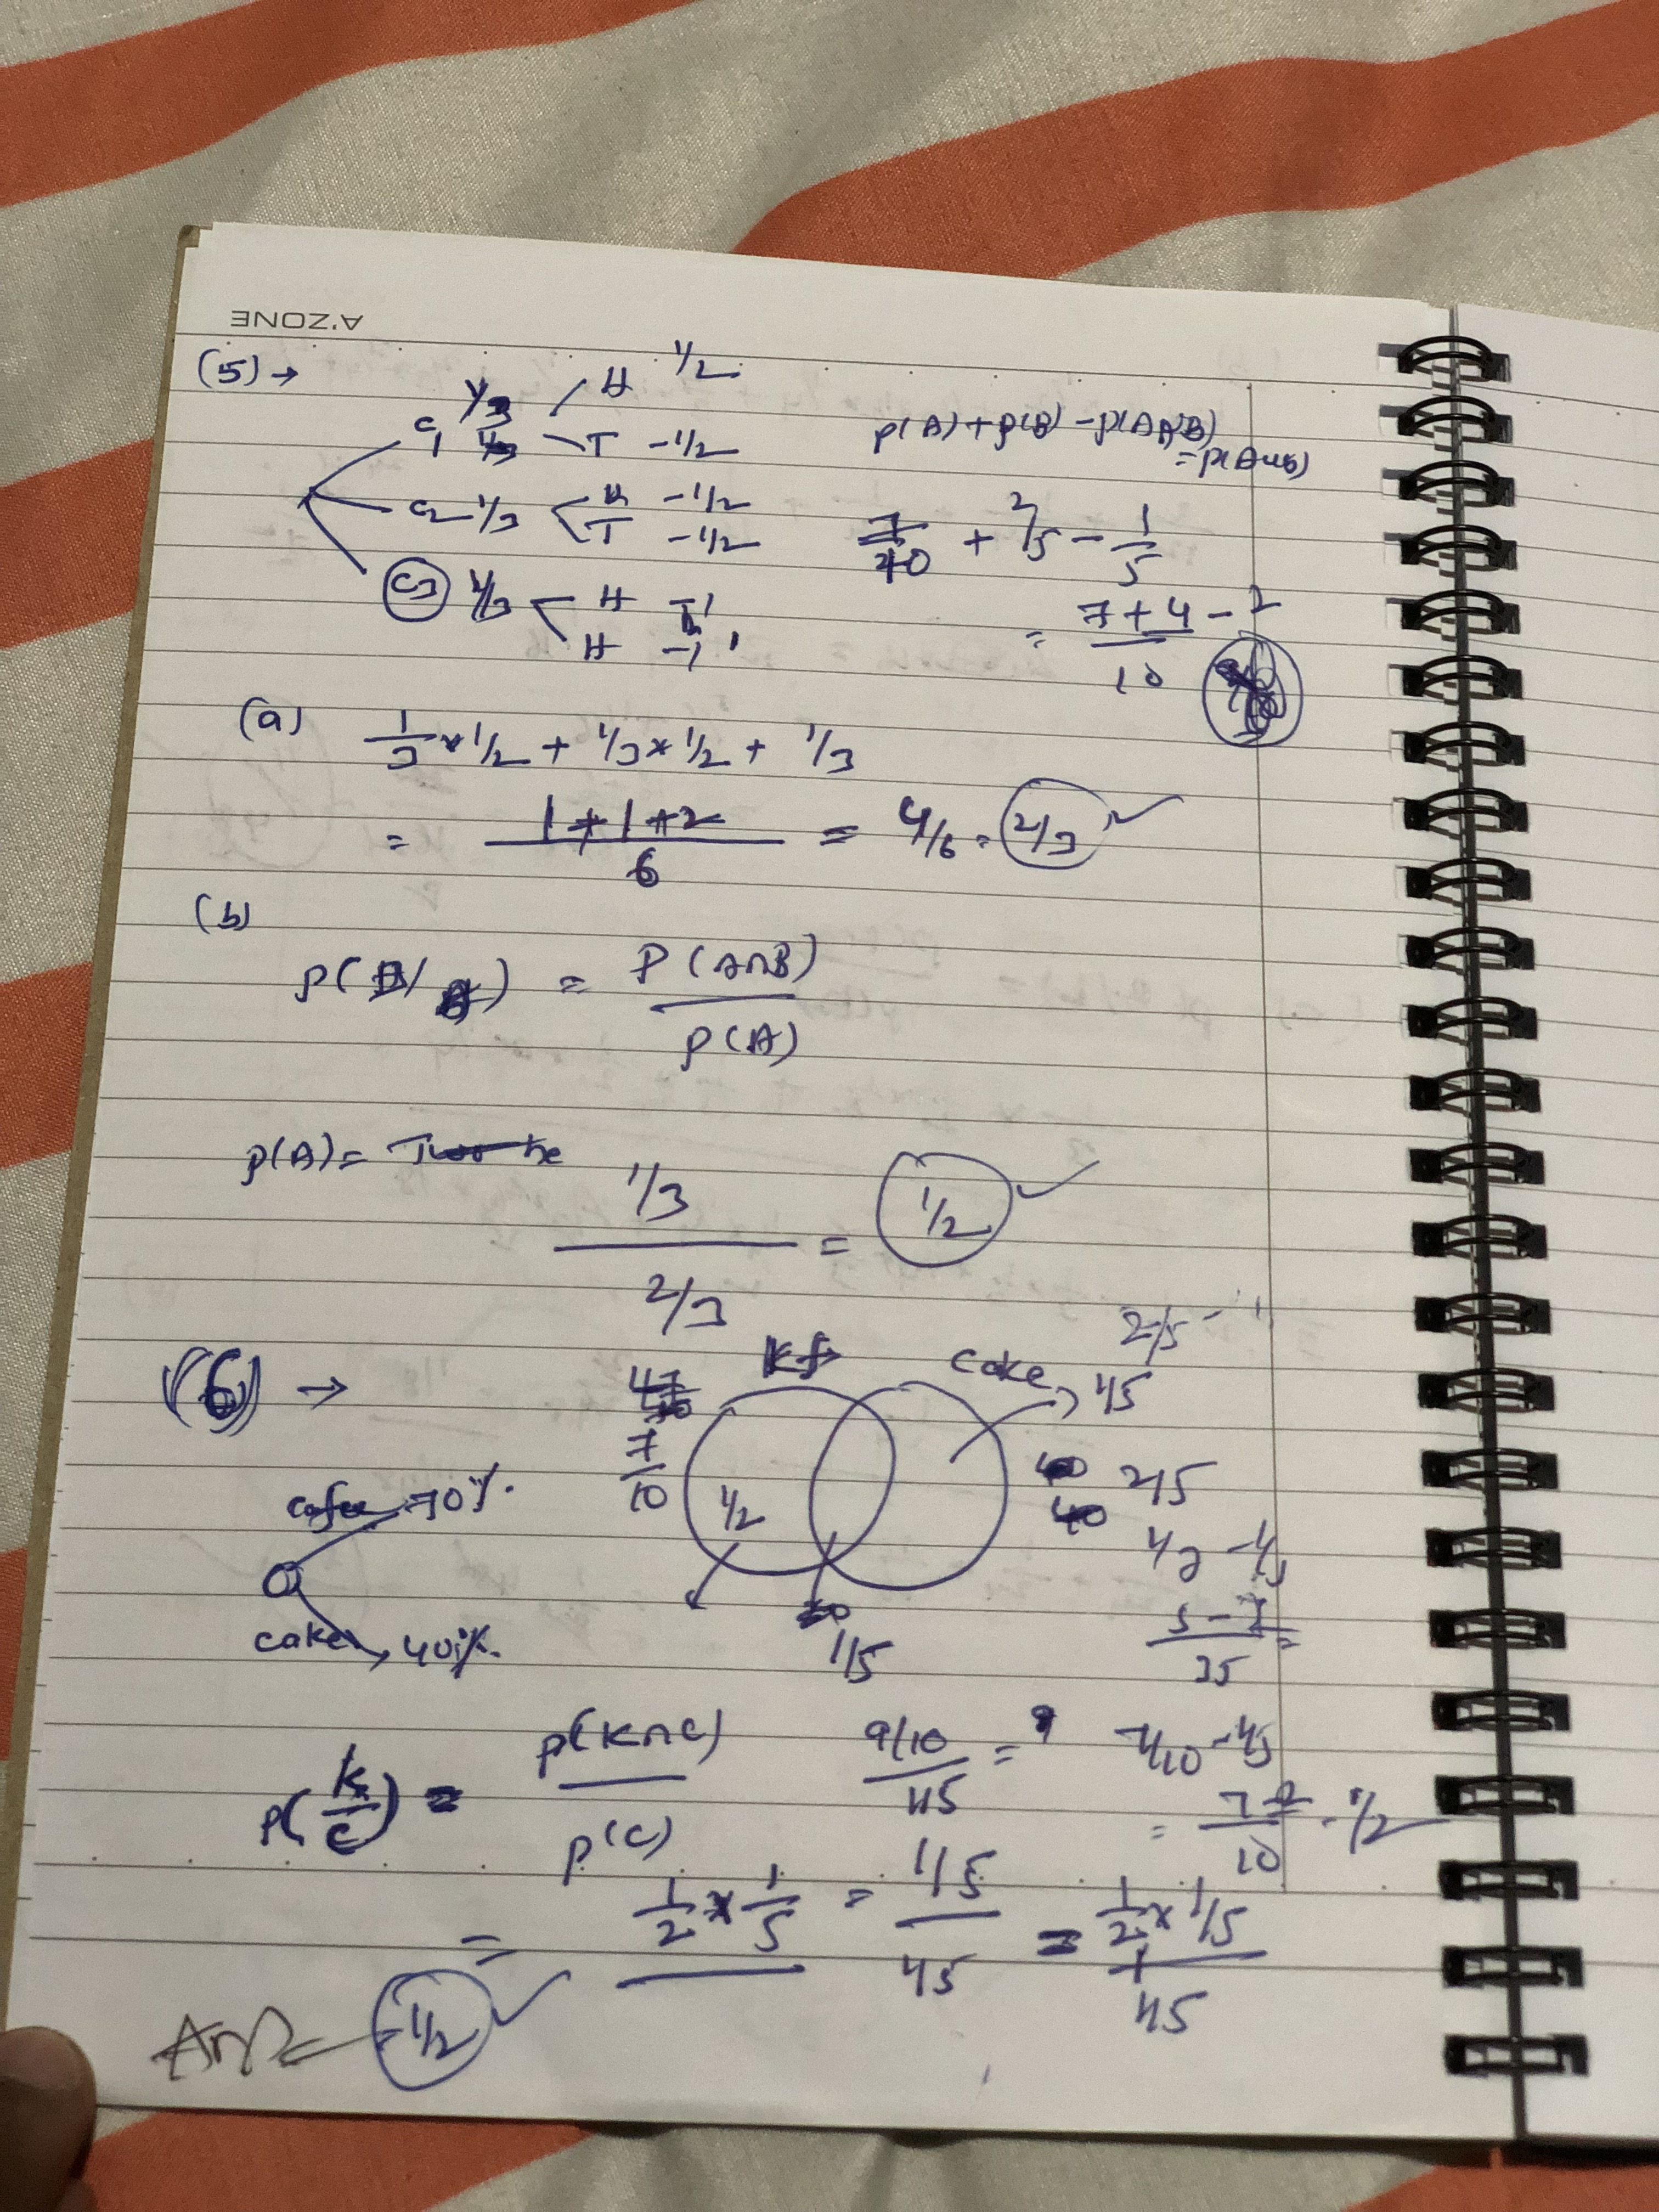 A'ZONE
(5) →
C1 1/3
H 1/2
T - 1/2
C2 1/3
H - 1/2
T - 1/2
C3 1/3
H - 1
H - 1
P(A) + P(B) - P(A∩B)
= P(A∪B)
7/10 + 2/5 - 1/5
= 7+4-2/10
(a) 1/3 × 1/2 + 1/3 × 1/2 + 1/3
= 1+1+2/6 = 4/6 = 2/3 ✓
(b)
P(B/A) = P(A∩B)/P(A)
P(A) = Two he
1/3 / 2/3 = 1/2 ✓
(6) →
cofee → 70%.
cake → 40%.
Kf
cake → 1/5
2/5 -
7/10
1/2
2/5
1/5
P(K/C) = P(K∩C)/P(C)
9/10 / 45 =
7/10 - 1/5
= 7-2/10 = 1/2
= 1/2 × 1/5 = 1/5 / 45 = 1/2 × 1/5 / 45
Ans = 1/2 ✓